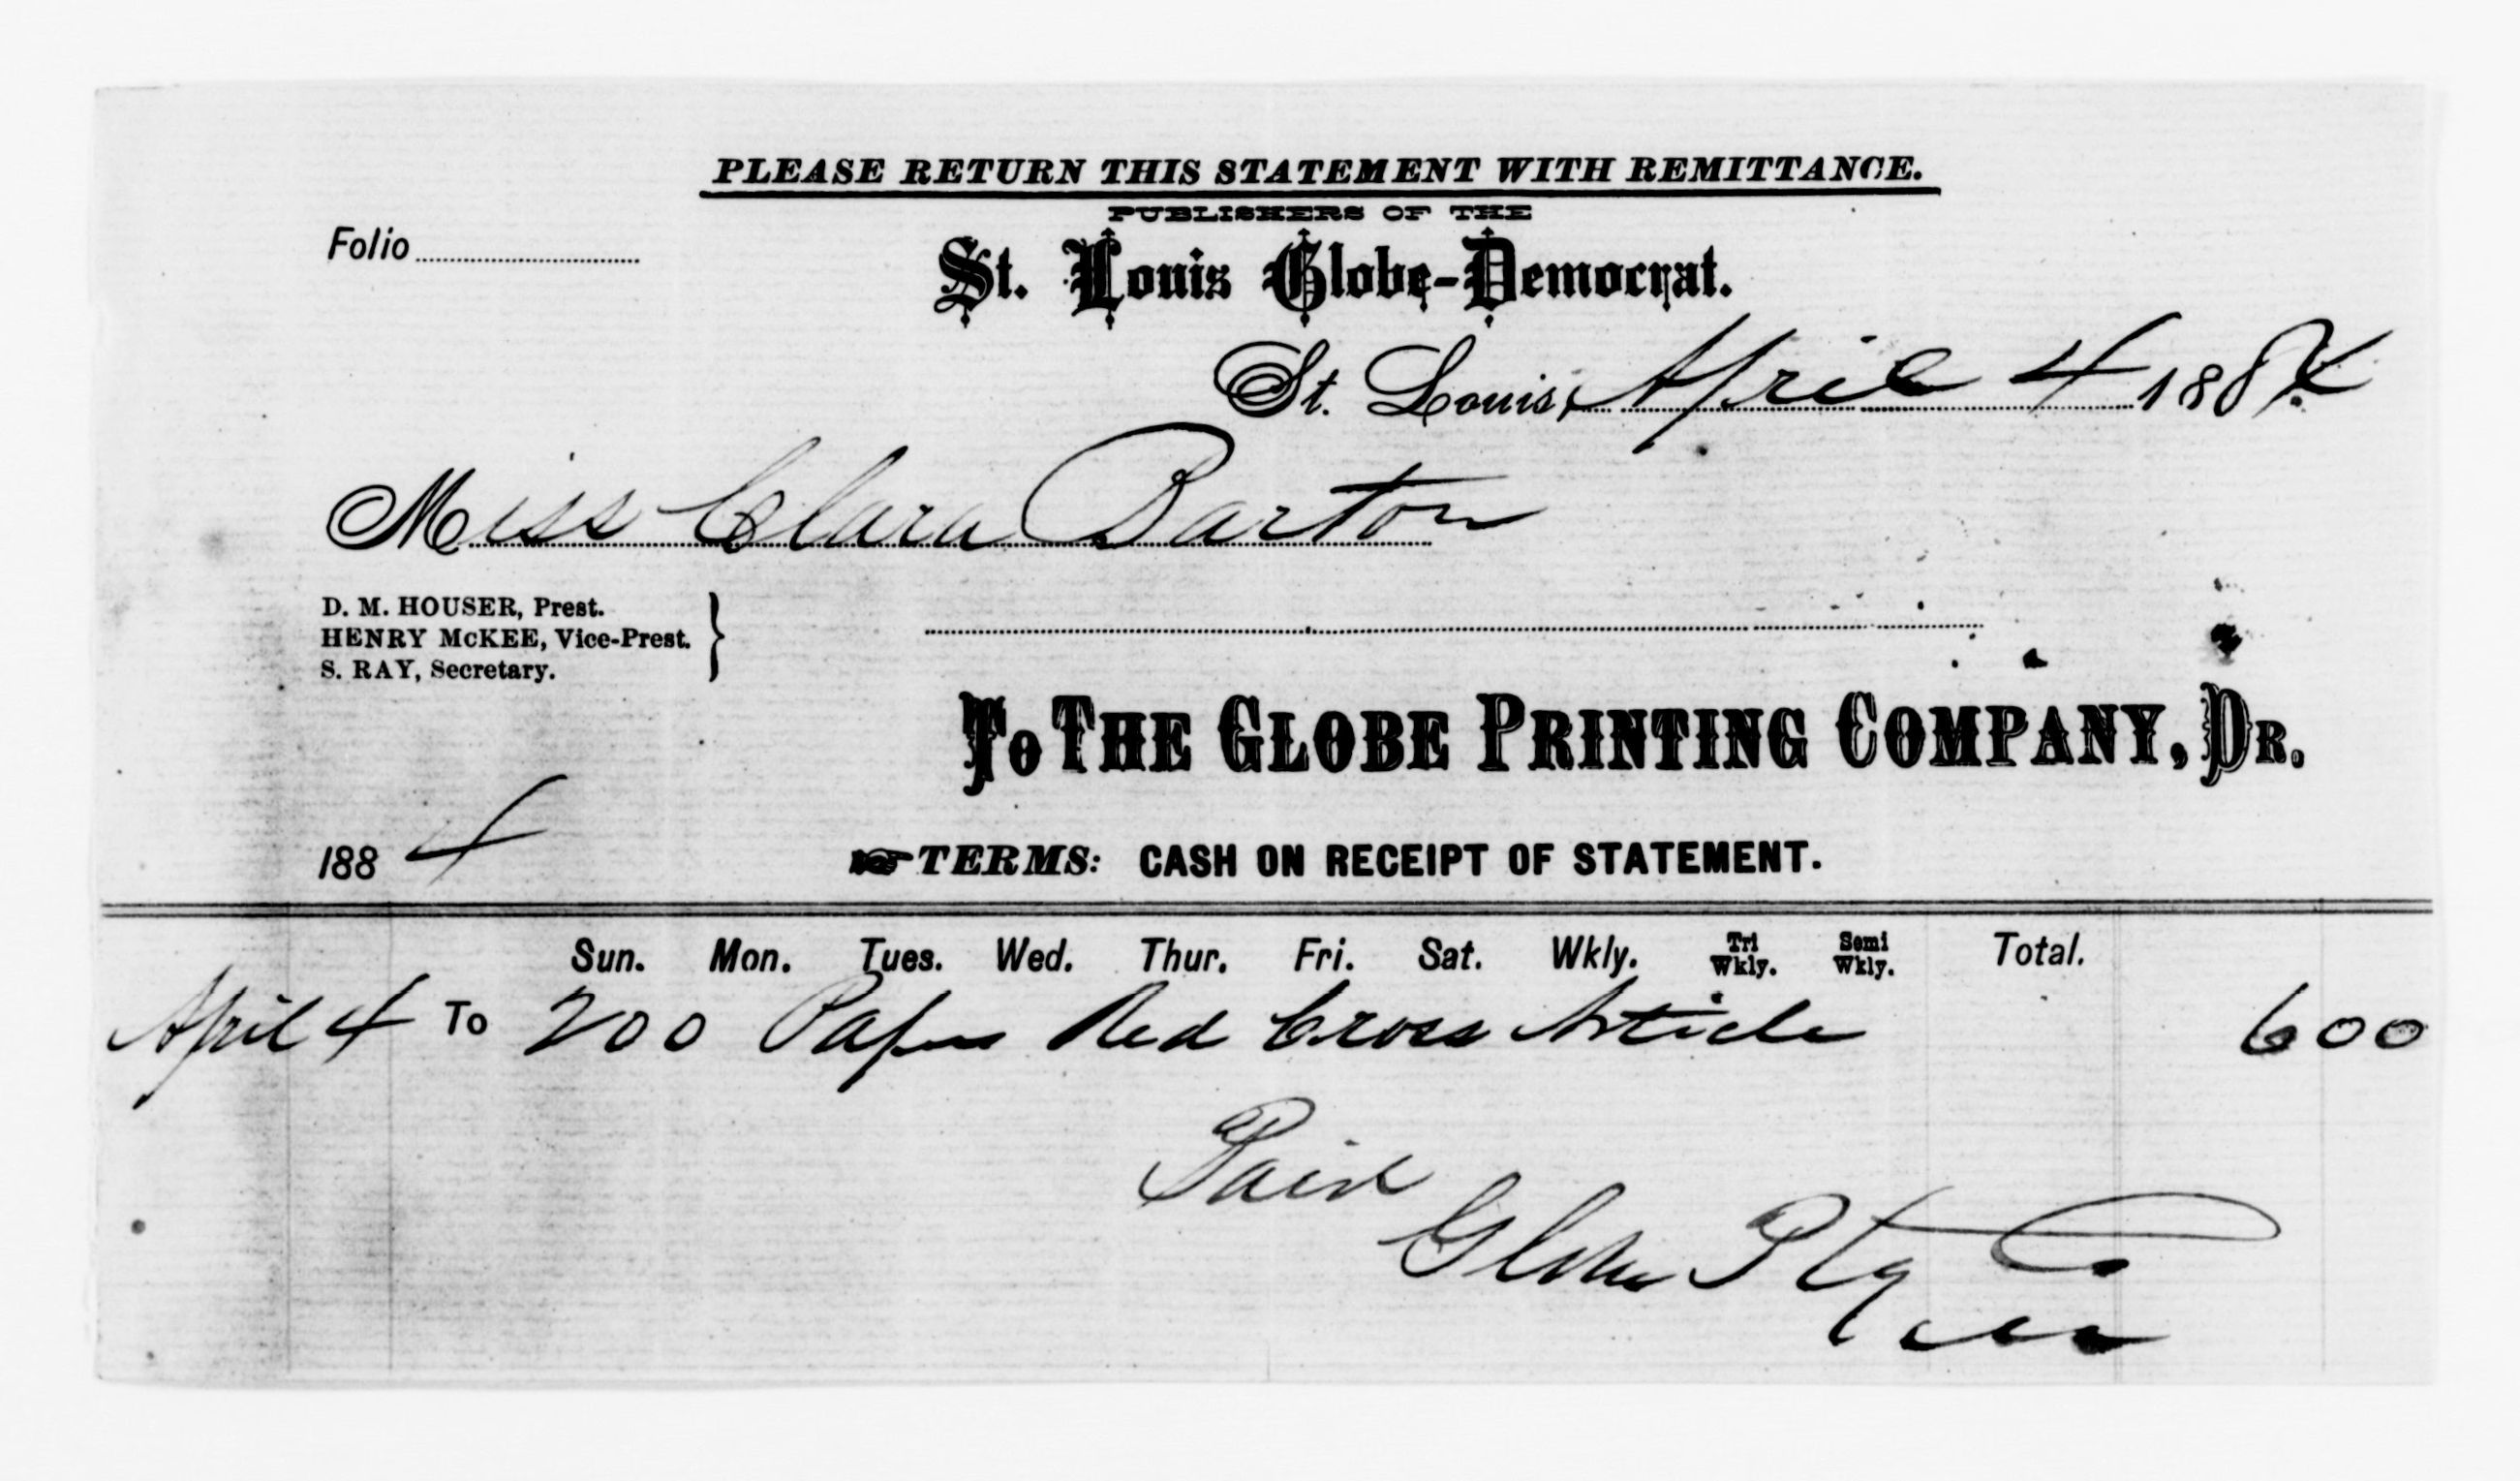 PLEASE RETURN THIS STATEMENT WITH REMITTANCE.
PUBLISHERS OF THE
Folio
St. Louis Globe-Democrat.
St. Louis, April 4 1884
Miss Clara Barton
D. M. HOUSER, Prest.
HENRY McKEE, Vice-Prest.
S. RAY, Secretary.
To THE GLOBE PRINTING COMPANY, DR.
1884
TERMS: CASH ON RECEIPT OF STATEMENT.
Sun. Mon. Tues. Wed. Thur. Fri. Sat. Wkly. Tri Wkly. Semi Wkly. Total.
April 4 To 200 Papers Red Cross Article 6 00
Paid
Globe Ptg Co